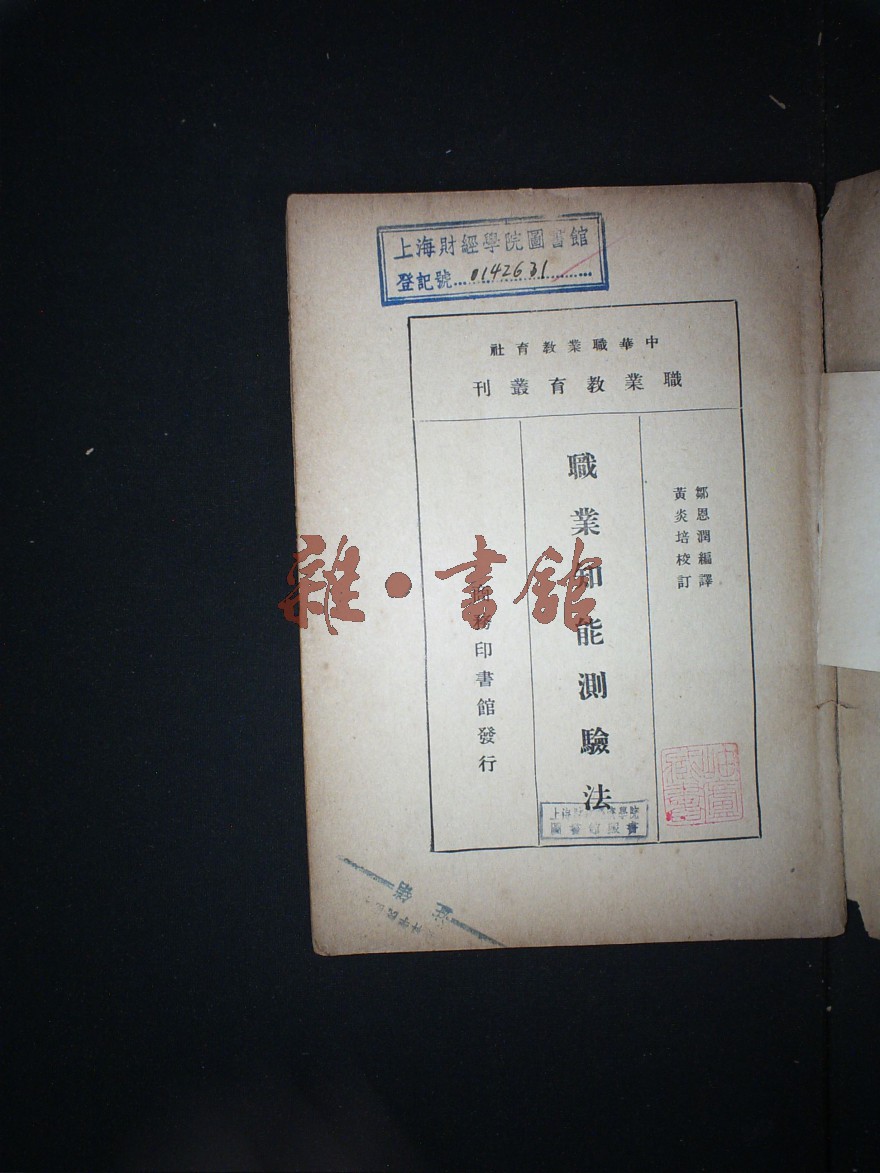 上海財經學院圖書館
登記號 0142631
中華職業教育社
職業教育叢刊
鄒恩潤編譯
黃炎培校訂
職業知能測驗法
商務印書館發行
雜·書館
圖書館藏書
註銷